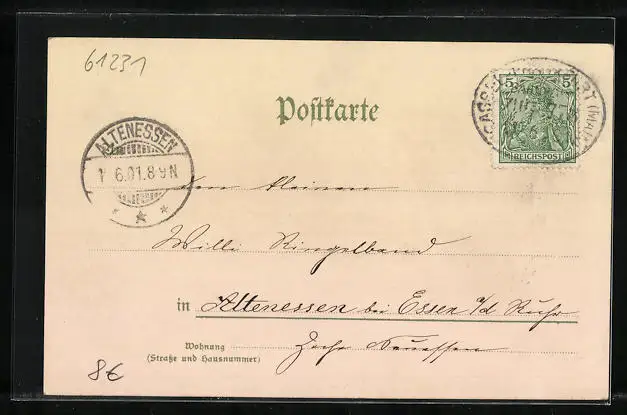 61231
5 5
CASSEL FRANKFURT (MAIN)
BAHNPOST
REICHSPOST
Postkarte
ALTENESSEN
1 6.01.8-9N
Dem kleinen
Willi Ringelband
in Altenessen bei Essen a/d Ruhr
Wohnung
(Straße und Hausnummer)
Zeche Neuessen
8€